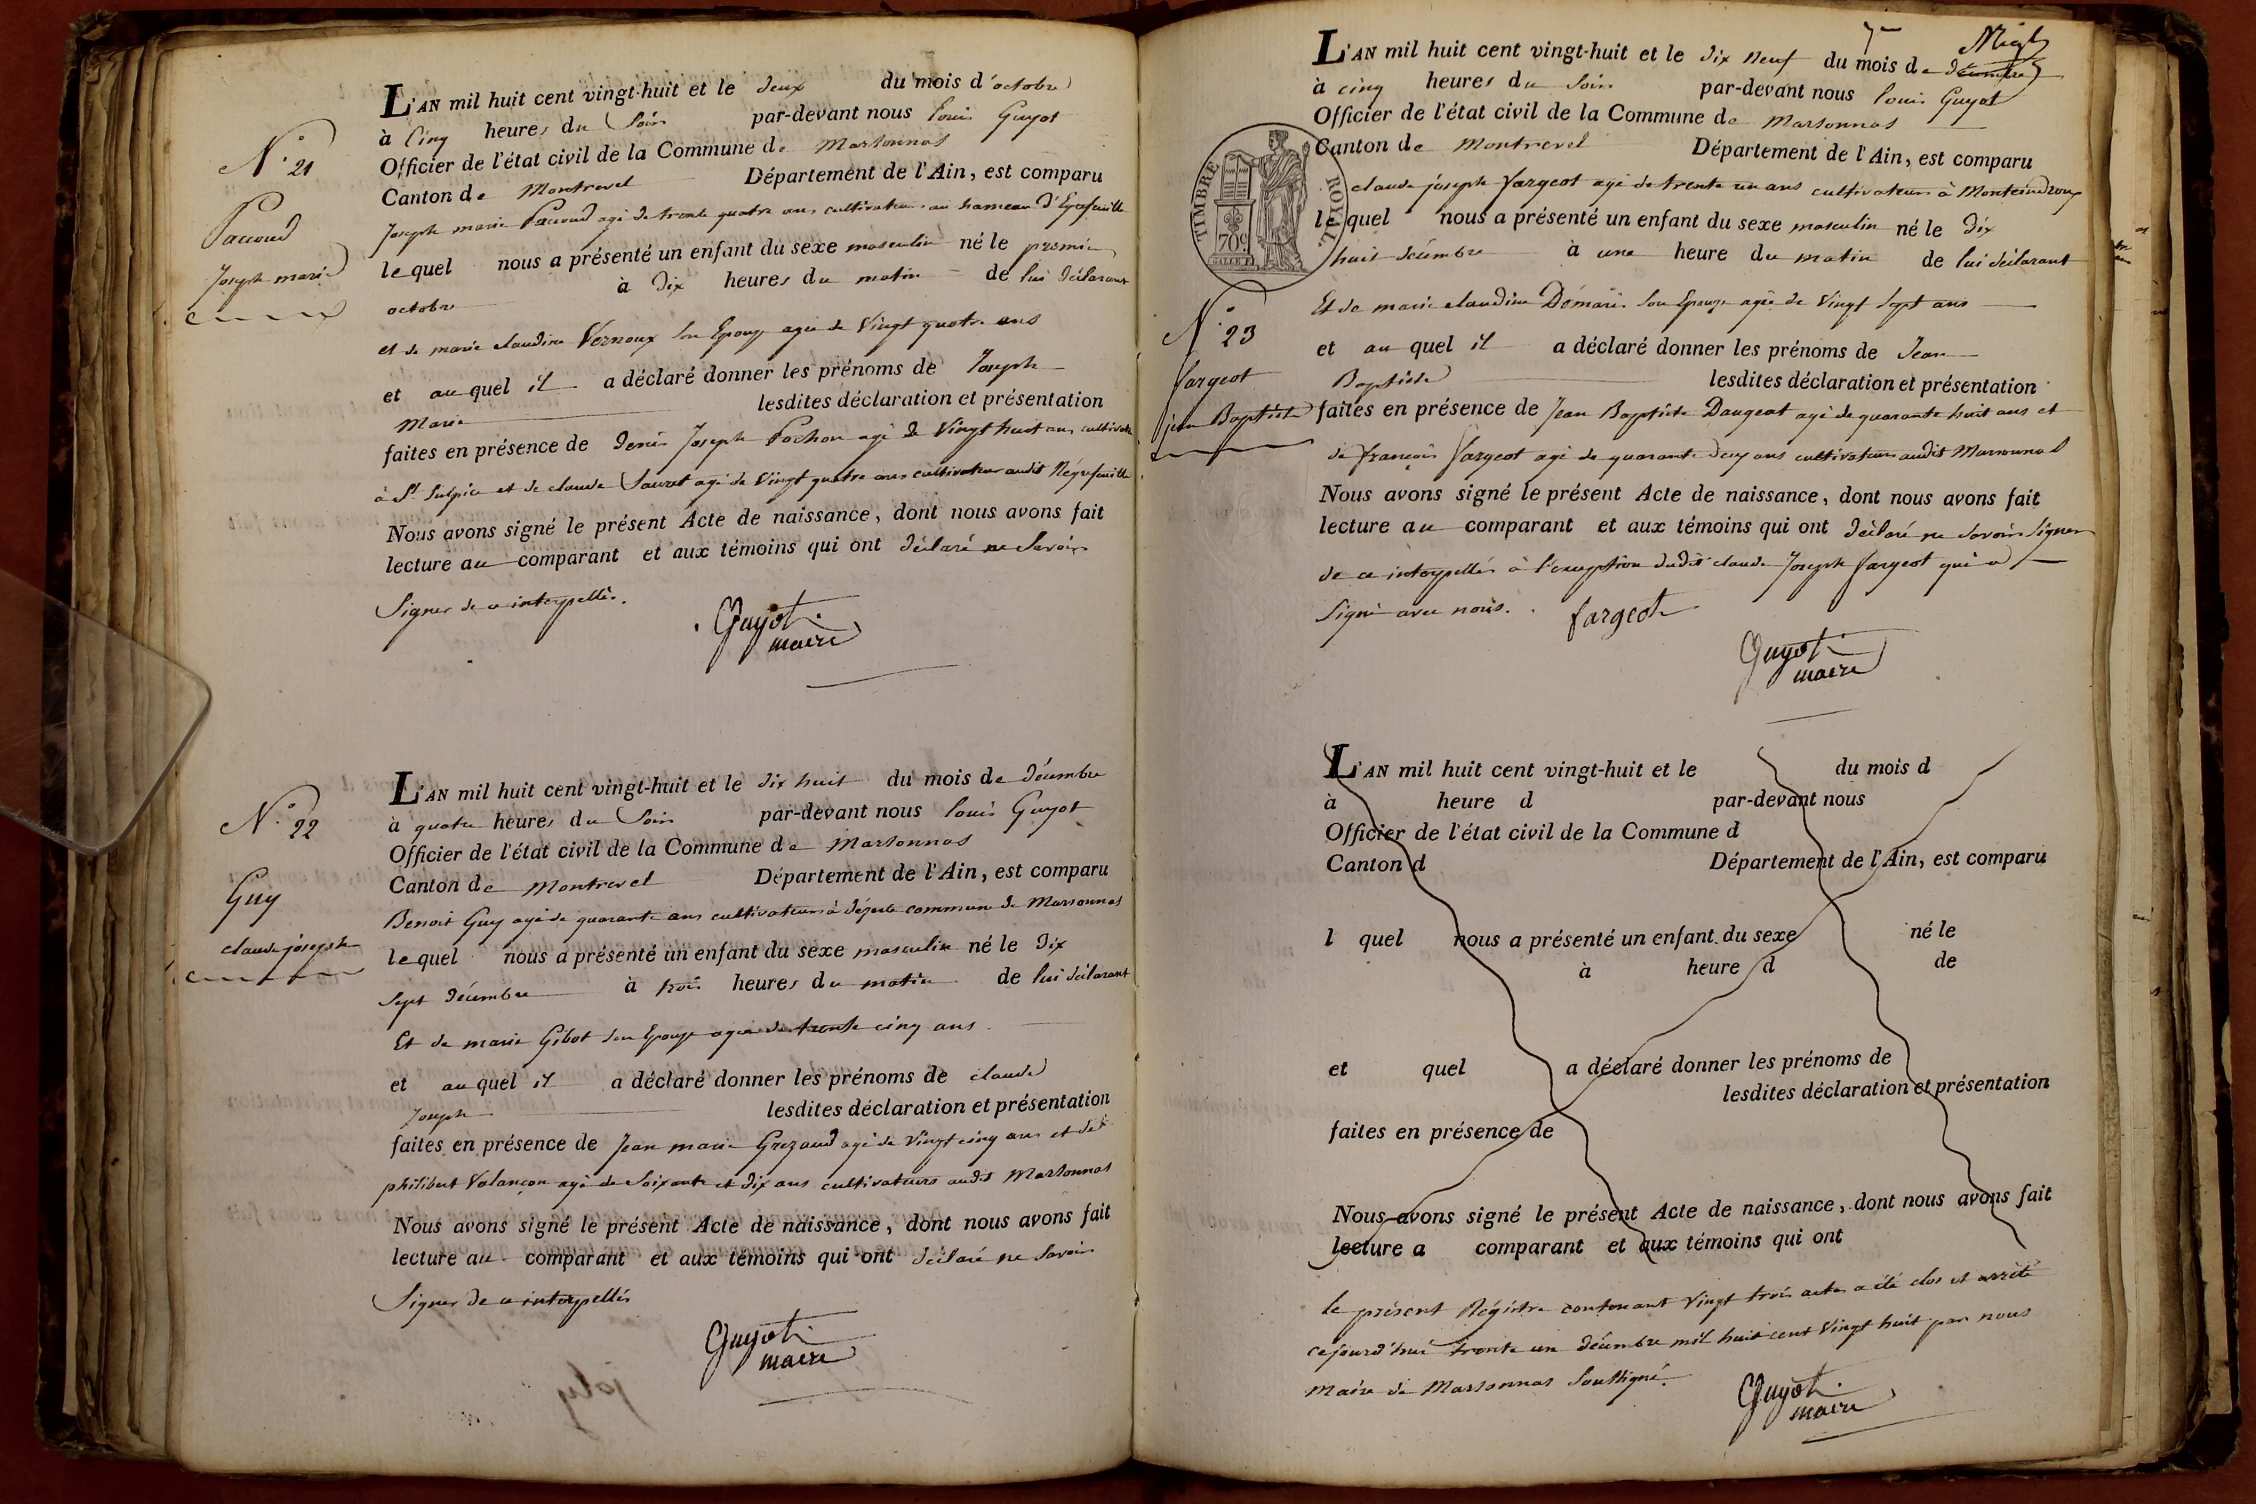 N.° 21
Paccoud
Joseph marie
L'AN mil huit cent vingt-huit et le deux du mois d'octobre
à Cinq heures du Soir par-devant nous Louis Guyot
Officier de l'état civil de la Commune de Marsonnas
Canton de Montrevel Département de l'Ain, est comparu
Joseph marie Paccoud agé de trente quatre ans cultivateur au hameau d'
lequel nous a présenté un enfant du sexe masculin né le premier
octobre à Dix heures du matin de lui déclarant
et de marie claudine Vernoux son Epouse agée de Vingt quatre ans
et auquel il a déclaré donner les prénoms de Joseph
Marie lesdites déclaration et présentation
faites en présence de denis Joseph Pochon agé de Vingt huit ans cultivateur
à St Sulpice et de claude Sauret agé de Vingt quatre ans cultivateur audit
Nous avons signé le présent Acte de naissance, dont nous avons fait
lecture au comparant et aux témoins qui ont déclaré ne Savoir
Signer de ce interpellés.
Guyot
maire
N.° 22
Guy
claude joseph
L'AN mil huit cent vingt-huit et le dix huit du mois de décembre
à quatre heures du Soir par-devant nous Louis Guyot
Officier de l'état civil de la Commune de Marsonnas
Canton de Montrevel Département de l'Ain, est comparu
Benoit Guy agé de quarante ans cultivateur à commune de Marsonnas
lequel nous a présenté un enfant du sexe masculin né le dix
Sept décembre à trois heures du matin de lui déclarant
Et de marie Gibot son Epouse agée de trente cinq ans
et auquel il a déclaré donner les prénoms de claude
Joseph lesdites déclaration et présentation
faites en présence de Jean marie Grezaud agé de Vingt cinq ans et de
philibert Valançon agé de Soixante et dix ans cultivateurs audit Marsonnas
Nous avons signé le présent Acte de naissance, dont nous avons fait
lecture au comparant et aux témoins qui ont déclaré ne Savoir
Signer de ce interpellés
Guyot
maire
L'AN mil huit cent vingt-huit et le dix neuf du mois de décembre
à cinq heures du Soir par-devant nous Louis Guyot
Officier de l'état civil de la Commune de Marsonnas
Canton de Montrevel Département de l'Ain, est comparu
TIMBRE ROYAL
70c
claude joseph fargeot agé de trente un ans cultivateur à
lequel nous a présenté un enfant du sexe masculin né le dix
huit décembre à une heure du matin de lui déclarant
Et de marie claudine Démaris son Epouse agée de Vingt Sept ans
N.° 23
fargeot
jean Baptiste
et auquel il a déclaré donner les prénoms de Jean
Baptiste lesdites déclaration et présentation
faites en présence de Jean Baptiste Daugeat agé de quarante huit ans et
de françois fargeot agé de quarante deux ans cultivateurs audit Marsonnas
Nous avons signé le présent Acte de naissance, dont nous avons fait
lecture au comparant et aux témoins qui ont déclaré ne Savoir Signer
de ce interpellés à l'exception dudit claude Joseph fargeot qui a
Signé avec nous.
fargeot
Guyot
maire
L'AN mil huit cent vingt-huit et le du mois d
à heure d par-devant nous
Officier de l'état civil de la Commune d
Canton d Département de l'Ain, est comparu
l quel nous a présenté un enfant du sexe né le
à heure d de
et quel a déclaré donner les prénoms de
lesdites déclaration et présentation
faites en présence de
Nous avons signé le présent Acte de naissance, dont nous avons fait
lecture a comparant et aux témoins qui ont
Le présent Régistre contenant Vingt trois actes a été clos et arrêté
cejourd'hui trente un décembre mil huit cent Vingt huit par nous
Maire de Marsonnas Soussigné.
Guyot
maire